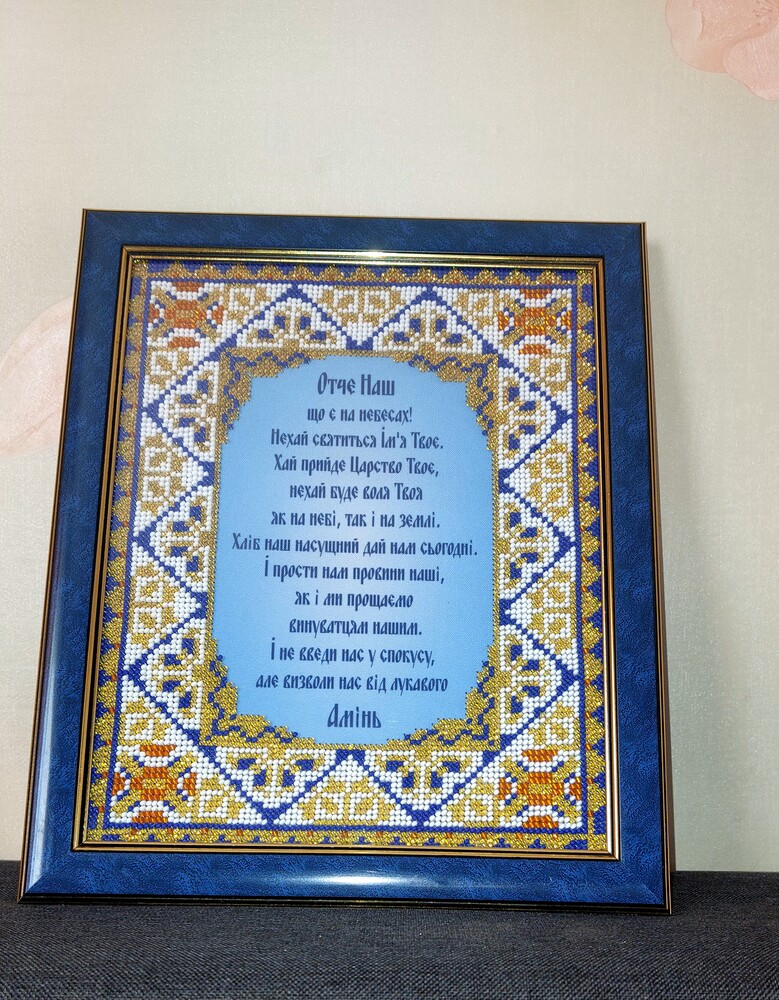 Отче Наш
що є на небесах!
Нехай святиться Ім'я Твоє.
Хай прийде Царство Твоє,
нехай буде воля Твоя
як на небі, так і на землі.
Хліб наш насущний дай нам сьогодні.
І прости нам провини наші,
як і ми прощаємо
винуватцям нашим.
І не введи нас у спокусу,
але визволи нас від лукавого
Амінь